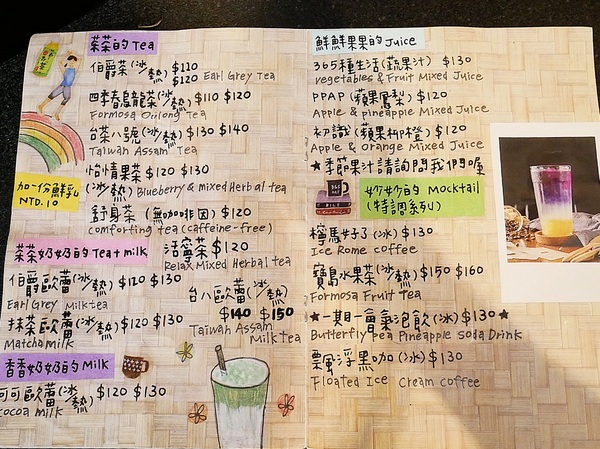 茶茶的 Tea
伯爵茶(冰/熱) $110 $120
Earl Grey Tea
四季烏龍茶(冰/熱) $110 $120
Formosa Oolong Tea
台茶八號(冰/熱) $130 $140
Taiwan Assam Tea
怡情果茶 $120 $130
(冰/熱) Blueberry & mixed Herbal tea
加一份鮮乳
NTD.10
舒身茶 (無咖啡因) $120
comforting tea (caffeine-free)
活寧茶 $120
Relax Mixed Herbal tea
茶茶奶奶的 Tea+milk
伯爵歐蕾(冰/熱) $120 $130
Earl Grey Milktea
台八歐蕾(冰/熱)
$140 $150
Taiwan Assam
Milk Tea
抹茶歐蕾(冰/熱) $120 $130
Matcha milk
香香奶奶的 Milk
可可歐蕾(冰/熱) $120 $130
cocoa milk
鮮鮮果果的 Juice
365種生活(蔬果汁) $130
vegetables & Fruit Mixed Juice
PPAP (蘋果鳳梨) $120
Apple & pineapple Mixed Juice
初識(蘋果柳橙) $120
Apple & orange Mixed Juice
★季節果汁請詢問我們喔
妙妙的 Mocktail
(特調系列)
檸馬好了(冰) $130
Ice Rome coffee
寶島水果茶(冰/熱) $150 $160
Formosa Fruit Tea
★一期一會氣泡飲(冰) $130★
Butterfly pea Pineapple Soda Drink
飄浮黑咖(冰) $130
Floated Ice Cream coffee